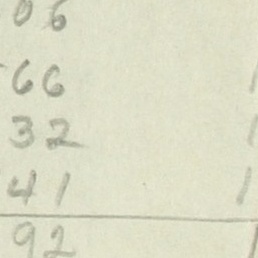 06
66 1
32 1
41 1
92 1